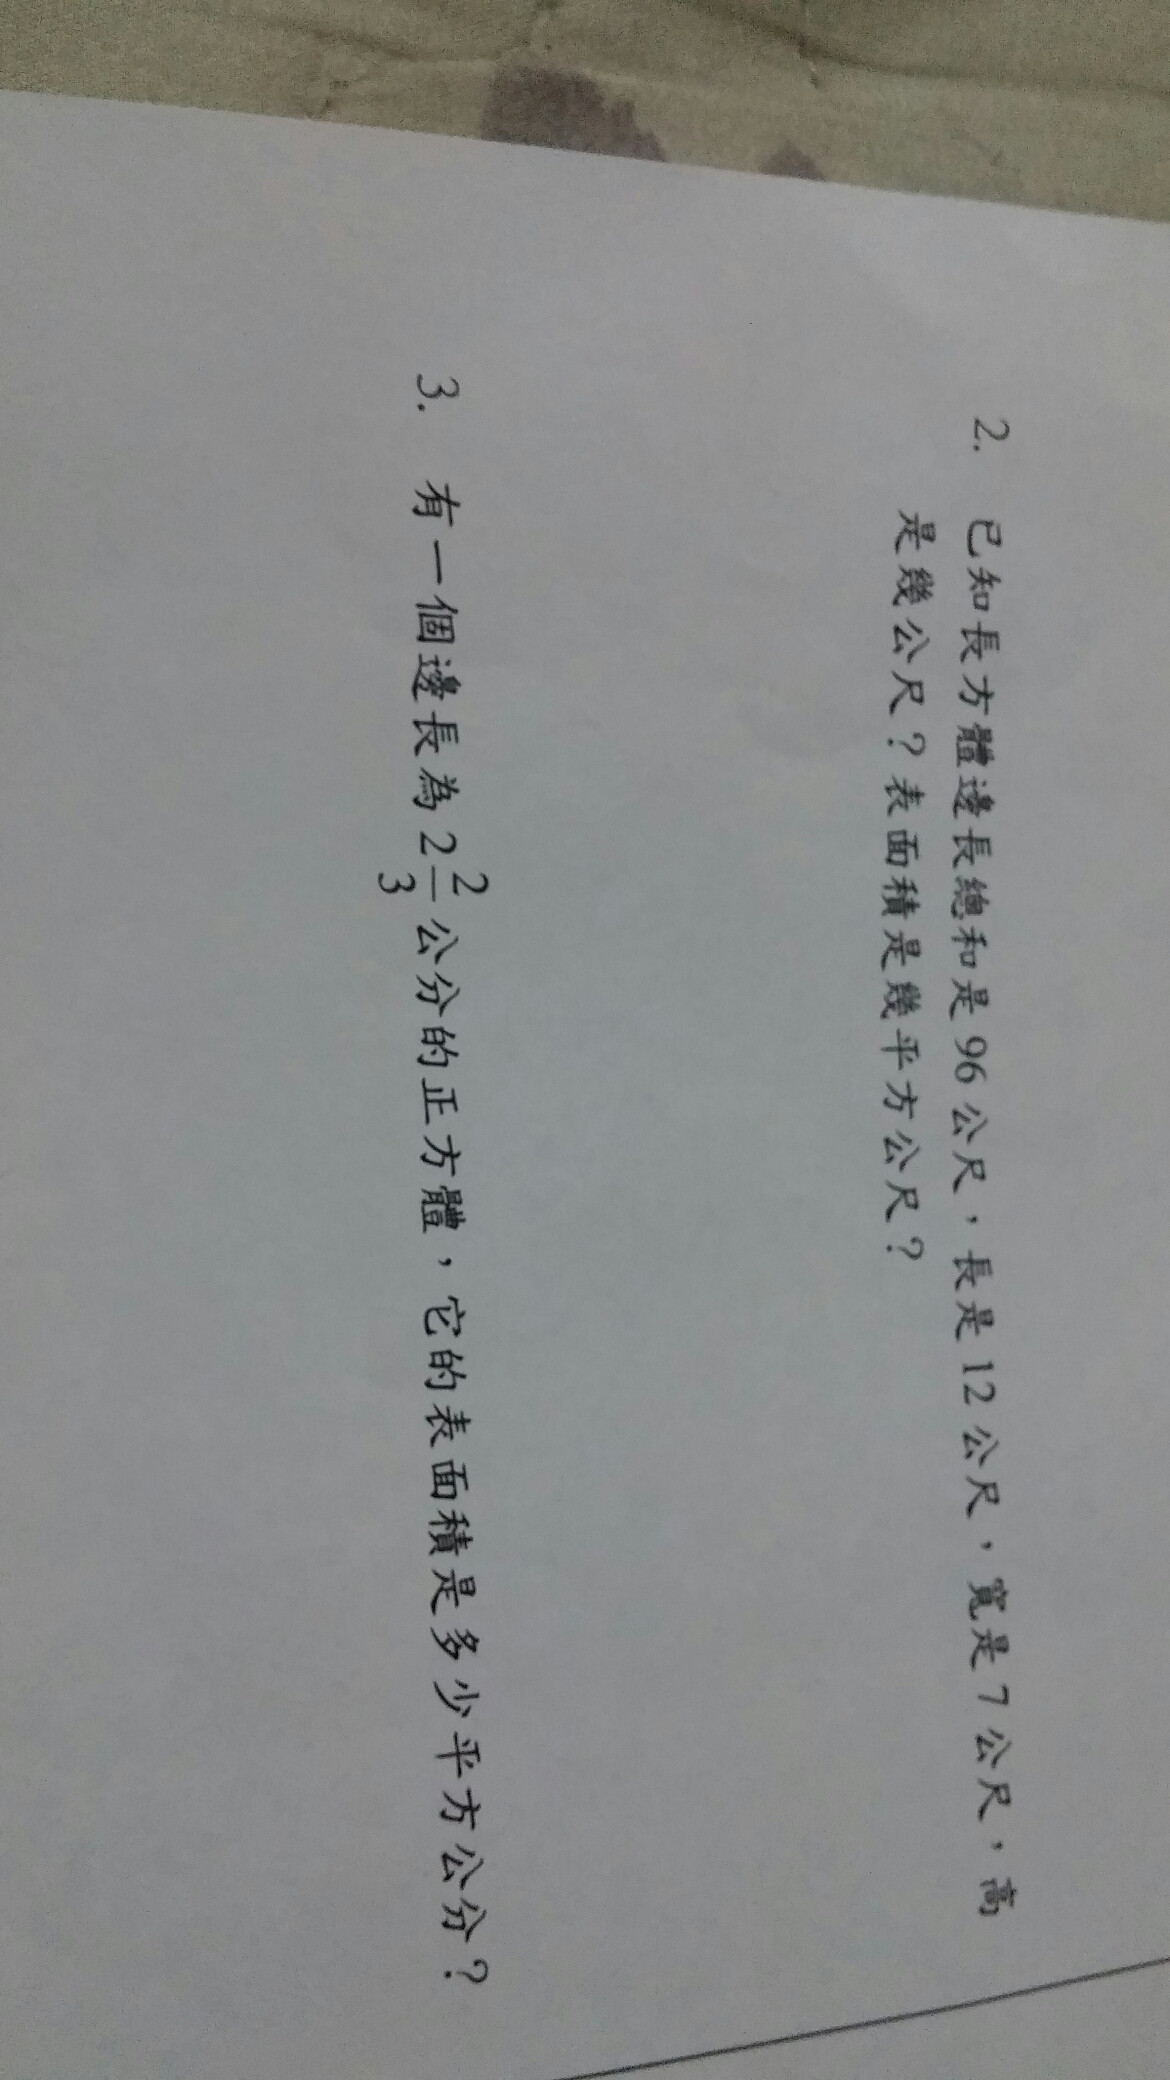 2. 已知長方體邊長總和是 96 公尺，長是 12 公尺，寬是 7 公尺，高
是幾公尺？表面積是幾平方公尺？
3. 有一個邊長為 2 2/3 公分的正方體，它的表面積是多少平方公分？